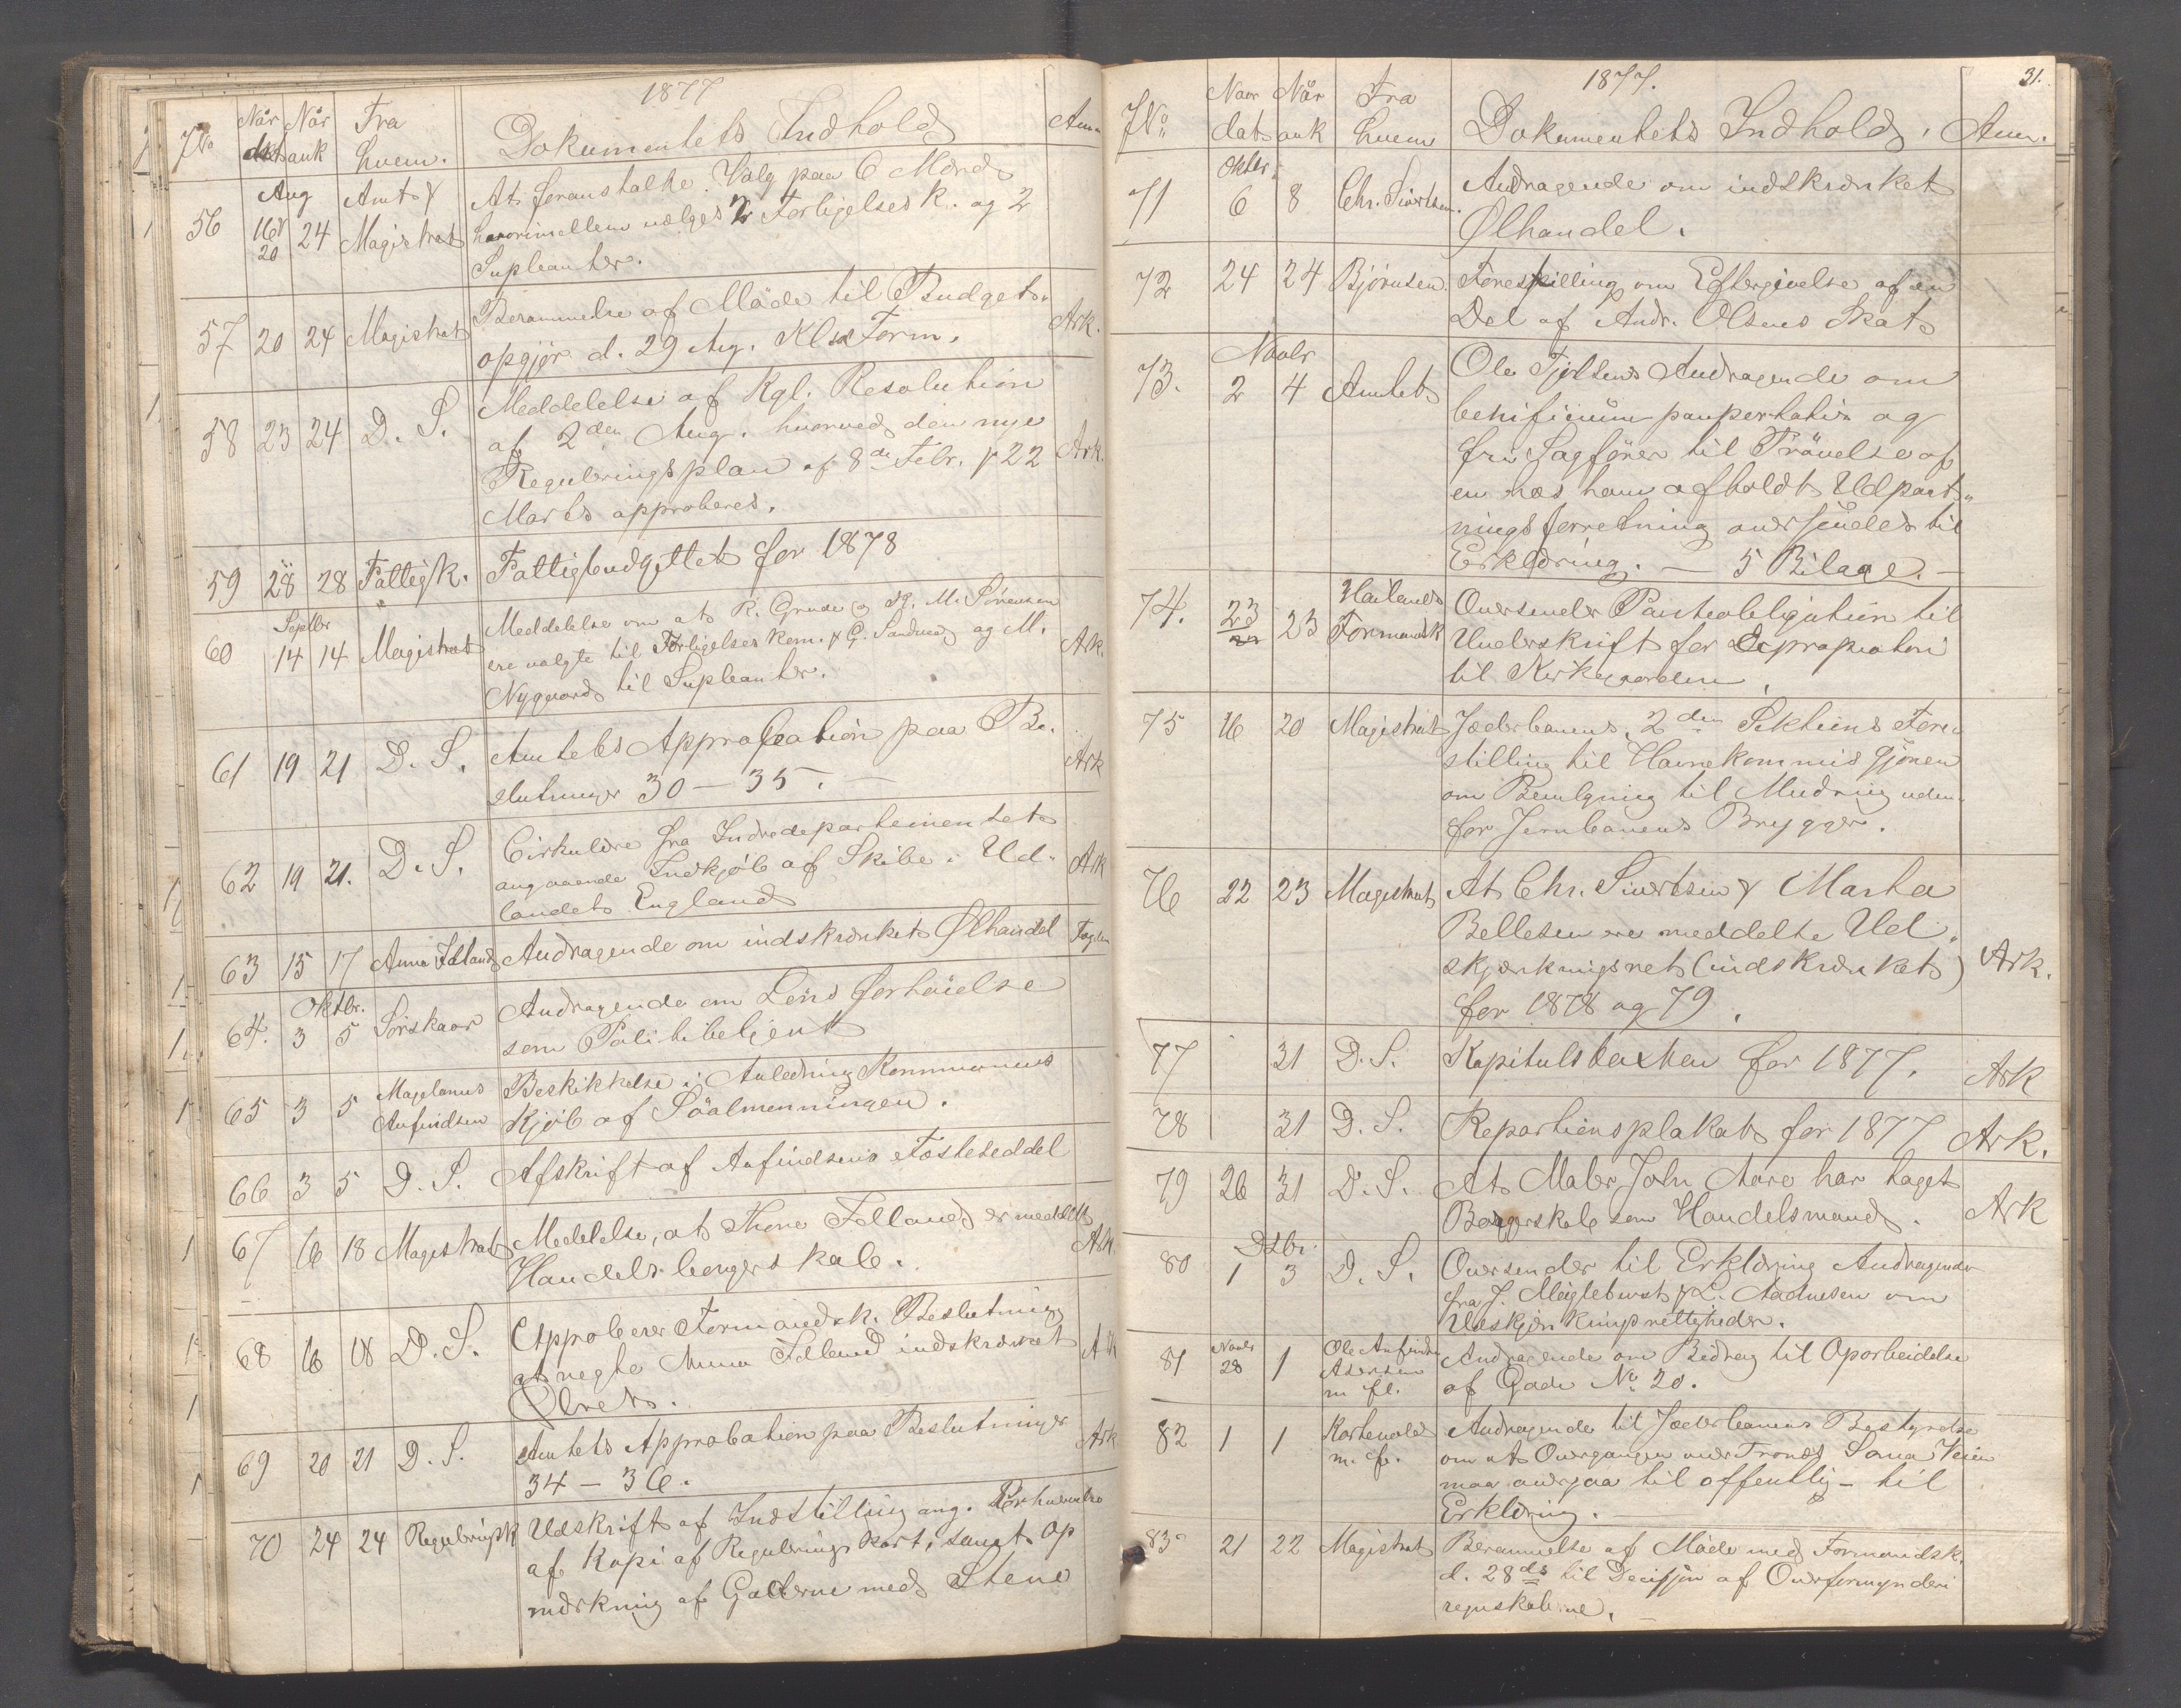 1877
No Når dat Når ank Fra hvem. Dokumentets Indhold Anm
56 Aug 16 & 20 24 Amt & Magistrat At foranstalte Valg paa 6 Mænd
hvorimellem vælges 2 Forligelsesk. og 2
Supleanter.
57 20 24 Magistrat Berammelse af Møde til Budgets-
opgjør d. 29 Aug. Kl Form. Ark.
58 23 24 D. S. Meddelelse af Kgl. Resolution
af 2den Aug. hvorved den nye
Reguleringsplan af 8de Febr. & 22 Ark.
Marts approberes.
59 28 28 Fattigk. Fattigbudgettet for 1878
60 Septbr 14 14 Magistrat Meddelelse om at R. Grude og M. Sørensen
ere valgte til Forligelses Kom. & G. Sandved og M. Ark.
Nygaard til Supleanter.
61 19 21 D. S. Amtets Approbation paa Be-
slutninger 30 — 35. — Ark
62 19 21. D. S. Cirkulære fra Indredepartementet
angaaende Indkjøb af Skibe i Ud- Ark
landet England
63 15 17 Anna Idland Andragende om indskrænket Ølhandel
64. Oktbr. 3 5 Sørskaar Andragende om Løns forhøielse
som Politibetjent
65 3 5 Magelanus Anfindsen Beskikkelse i Anledning Kommunens
Kjøb af Søalmenningen.
66 3 5 D. S. Afskrift af Anfindsens Fæsteseddel
67 16 18 Magistrat Meddelelse, at Thore Folland er meddelt
Handelsborgerskab. Ark.
68 16 18 D. S. Approberer Formandsk. Beslutning
at negte Anna Idland indskrænket Ark
Ølret.
69 20 21 D. S. Amtets Approbation paa Beslutninger
34 — 36. Ark
70 24 24 Regulringsk Udskrift af Indstilling ang. Erhvervelse
af Kopi af Regulerings Kart, samt Op
mærkning af Gaderne med Stene
31.
1877.
No Naar dat Når ank Fra hvem Dokumentets Indhold. Anm.
71 Oktbr. 6 8 Chr. Sivertsen. Andragende om indskrænket
Ølhandel.
72 24 24 Bjørnsen. Forestilling om Eftergivelse af en
Del af Andr. Olsens Skat
73. Novbr 2 4 Amtet Ole Tjeltsens Andragende om
benificium paupertatis og
fri Sagfører til Prøvelse af
en hos ham afholdt Udpant-
ningsforretning oversendes til
Erklæring. — 5 Bilage. —
74. 23 23 Høilands Formandsk Oversender Panteobligation til
Underskrift for Expropriation
til Kirkegaarden
75 16 20 Magistrat Jæderbanens 2den Sektions Fore-
stilling til Havnekommissjonen
om Bevilgning til Mudring uden-
for Jernbanens Brygger.
76 22 23 Magistrat At Chr. Sivertsen & Marta
Bellesen ere meddelte Ud-
skjænkningsret (indskrænket) Ark.
for 1878 og 79.
77 31 D. S. Kapitulstaxten for 1877. Ark
78 31 D. S. Repartionsplakat for 1877 Ark.
79 26 31 D. S. At Maler John Aare har taget
Borgerskab som Handelsmand. Ark
80 Dcbr. 1 3 D. S. Oversender til Erklæring Andragende
fra J. Møglebust & L. Aadnesen om
Udskjænkningsrettigheder.
81 Novbr 28 1 Ole Anfinds Asersen m fl. Andragende om Bidrag til Oparbeidelse
af Gade No 20.
82 1 1 Kartevold m. fl. Andragende til Jæderbanens Bestyrelse
om at Overgangen over Tronds Soma Veien
maa overgaa til offentlig — til
Erklæring. —
83 21 22 Magistrat Berammelse af Møde med Formandsk.
d. 28de til Decisjon af Overformynderi
regnskaberne. —